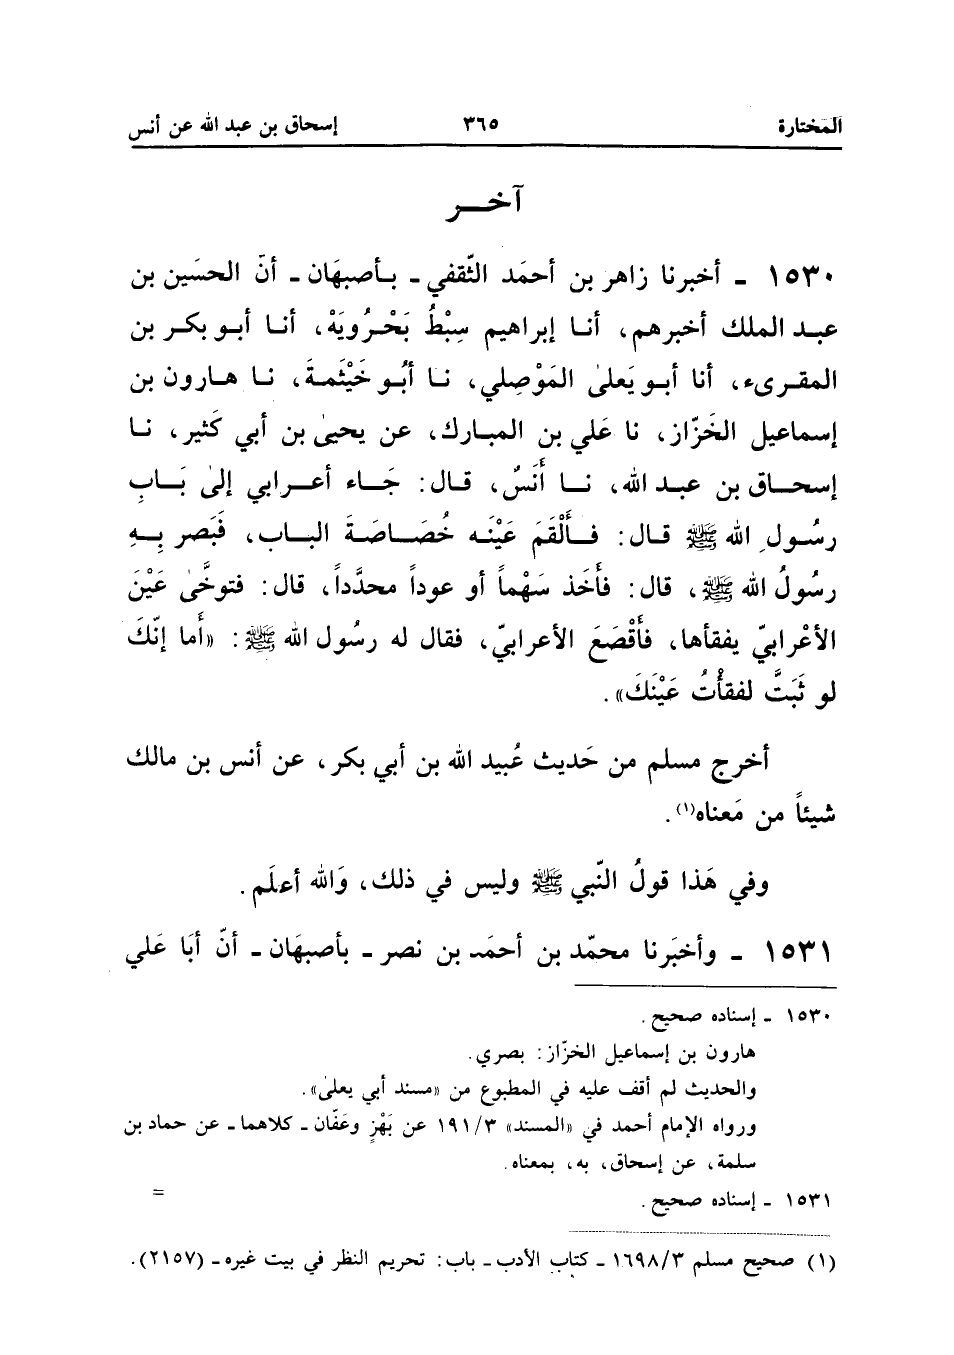 المختارة ٣٦٥ إسحاق بن عبد الله عن أنس
آخـــر
١٥٣٠ ـ أخبرنا زاهر بن أحمَد الثّقفي ـ بـأصبهَان ـ أنّ الحسَين بن
عبـد الملك أخبرهم، أنـا إبراهيم سِبْطُ بَحْـرُويَهْ، أنـا أبـو بكـر بن
المقـرىء، أنا أبـو يَعلىٰ المَوْصِلي، نـا أبُـو خَيْثَمـةَ، نـا هـارون بن
إسماعيل الخَزّاز، نا عَلي بن المبـارك، عن يحيىٰ بن أبي كَثير، نـا
إسحـاق بن عبـد الله، نـا أَنَسٌ، قـال: جَـاء أعـرابي إلىٰ بَـابِ
رسُـولِ الله ﷺ قـال: فـأَلْقَمَ عَيْنَـه خُصَـاصَـةَ البـاب، فَبَصر بِـهِ
رسُولُ الله ﷺ، قال: فأَخَذ سَهْماً أو عوداً محدَّداً، قال: فتوخَّىٰ عَيْنَ
الأعْرابيّ يفقأها، فأَقْصَعَ الأعرابيّ، فقال له رسُول الله ﷺ: «أَما إنّكَ
لو ثَبَتَّ لفقأْتُ عَيْنَكَ».
أخرج مسلم من حَديث عُبيد الله بن أبي بكر، عن أنس بن مالك
شيئاً من مَعناه(١).
وفي هَذا قولُ النّبي ﷺ وليس في ذلك، وَالله أعلَم.
١٥٣١ ـ وأخبَرنا محمّد بن أحمَـد بن نصر ـ بأصبهَان ـ أنّ أبَا عَلي
١٥٣٠ ـ إسناده صحيح.
هارون بن إسماعيل الخزّاز: بصري.
والحديث لم أقف عليه في المطبوع من «مسند أبي يعلىٰ».
ورواه الإمام أحمد في «المسند» ١٩١/٣ عن بَهْزٍ وعَفّان ـ كلاهما ـ عن حماد بن
سلمة، عن إسحاق، به، بمعناه.
١٥٣١ ـ إسناده صحيح. =
(١) صحيح مسلم ١٦٩٨/٣ ـ كتاب الأدب ـ باب: تحريم النظر في بيت غيره ـ (٢١٥٧).